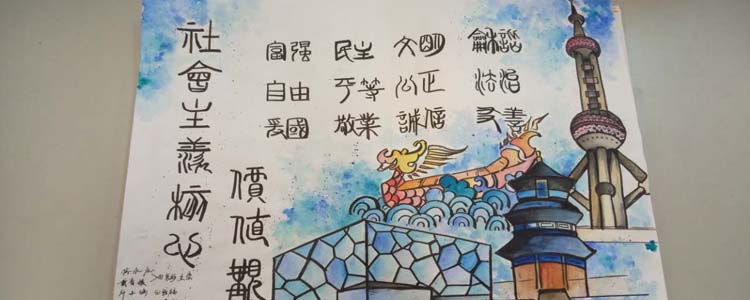 社會主義核心
價值觀
富强 民主 文明 龢諧
自由 平等 公正 法治
愛國 敬業 誠信 友善